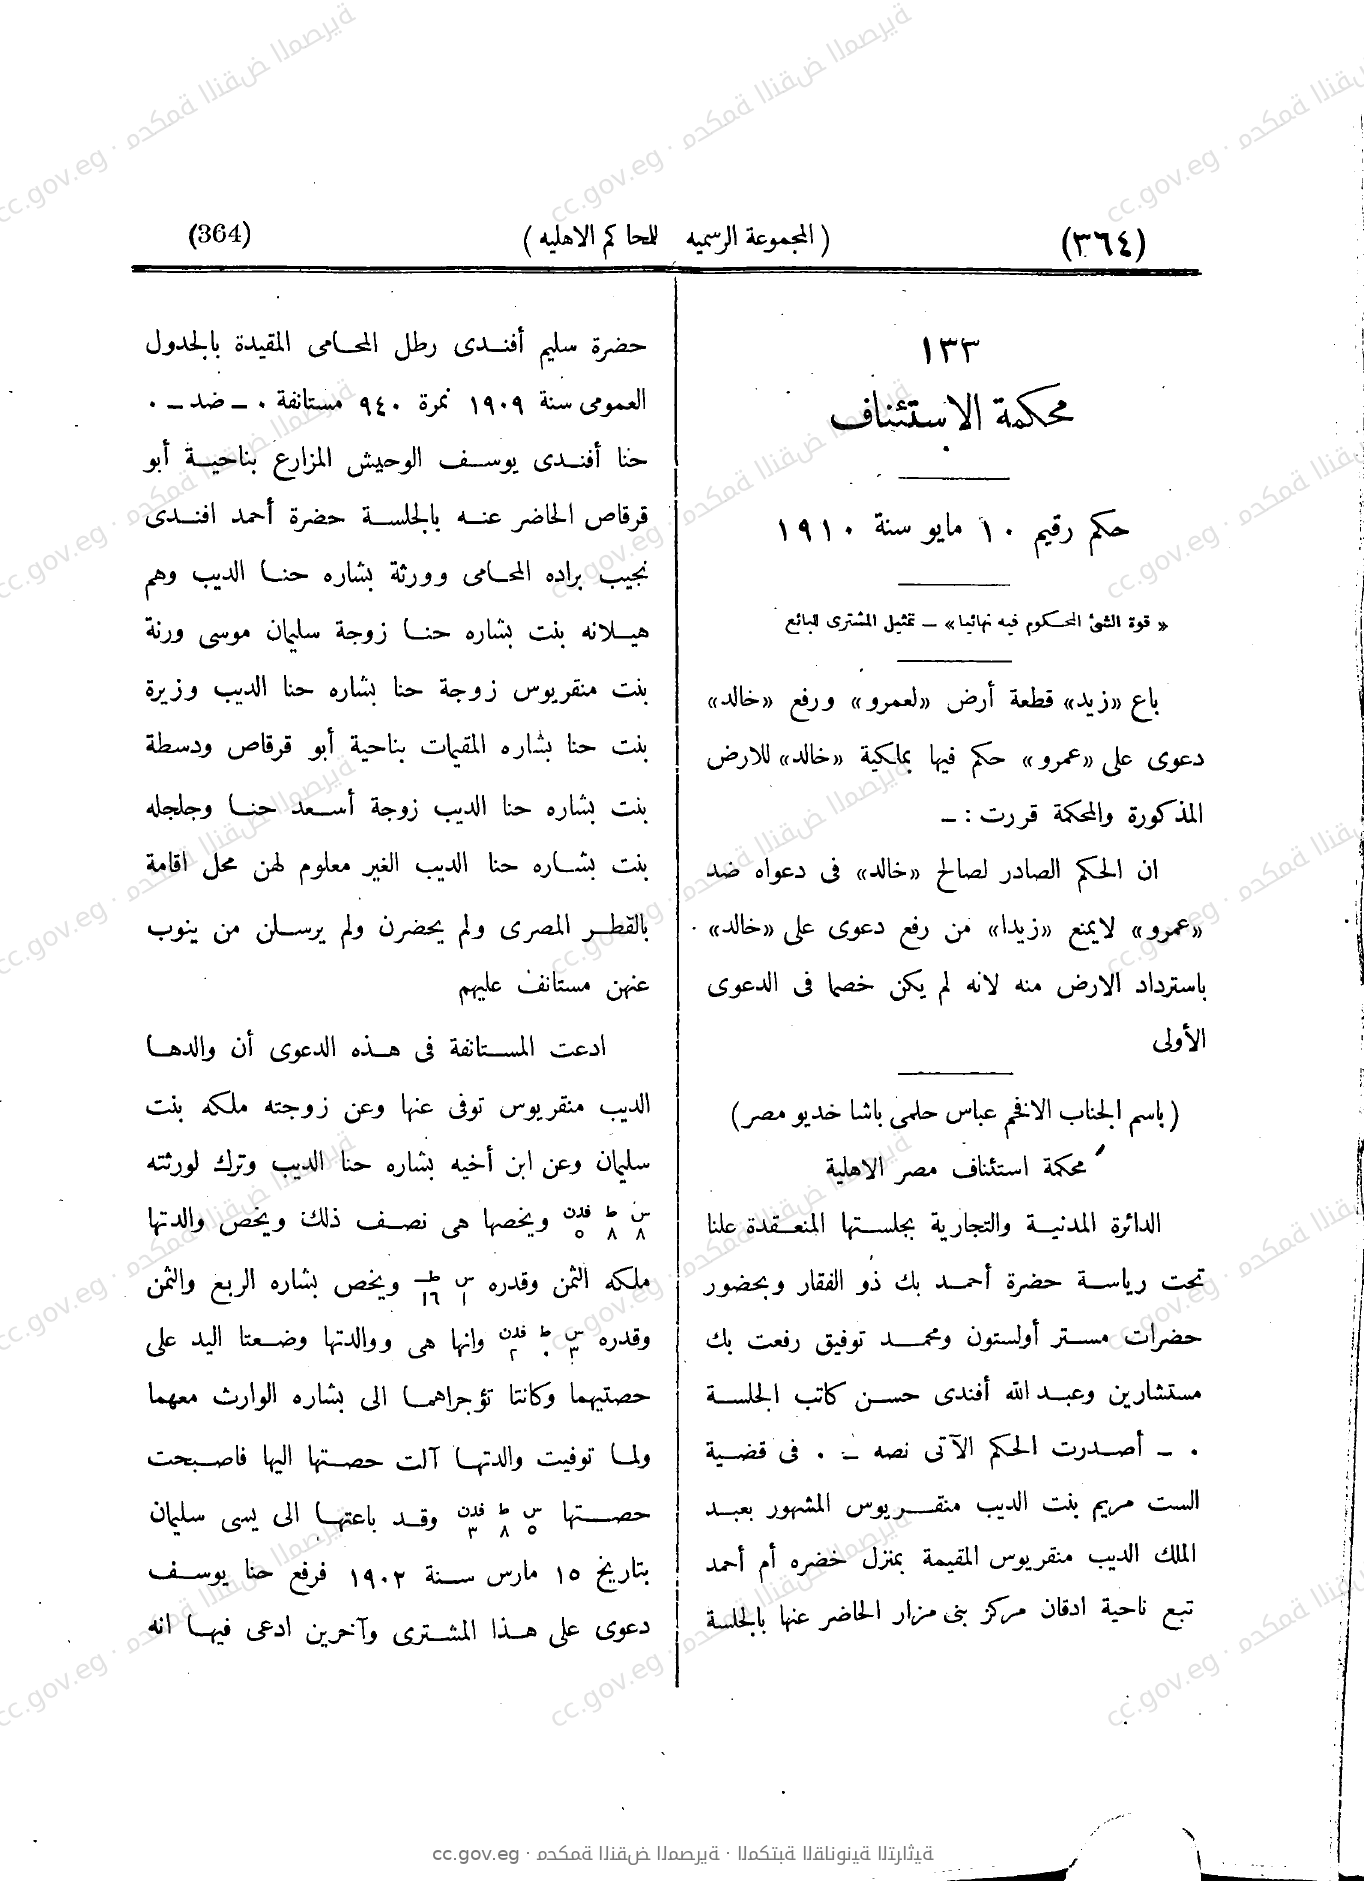 (٣٦٤)
( المجموعة الرسميه للمحاكم الاهليه )
(364)
١٣٣
محكمة الاستئناف
حكم رقيم ١٠ مايو سنة ١٩١٠
« قوة الشئ المحكوم فيه نهائيا » – تمثيل المشترى للبائع
باع «زيد» قطعة أرض «لعمرو» ورفع «خالد»
دعوى على «عمرو» حكم فيها بملكية «خالد» للارض
المذكورة والمحكمة قررت : –
ان الحكم الصادر لصالح «خالد» فى دعواه ضد
«عمرو» لايمنع «زيدا» من رفع دعوى على «خالد»
باسترداد الارض منه لانه لم يكن خصما فى الدعوى
الأولى
( باسم الجناب الافخم عباس حلمى باشا خديو مصر )
محكمة استئناف مصر الاهلية
الدائرة المدنيـة والتجارية بجلسـتها المنعـقدة علنا
تحت رياسـة حضرة أحمـد بك ذو الفقار وبحضور
حضرات مسـتر أولستون ومحمـد توفيق رفعت بك
مستشارين وعبـد الله أفندى حسـن كاتب الجلسـة
٠ – أصـدرت الحكم الآتى نصه – ٠ فى قضـية
الست مريم بنت الديب منقـريوس المشهور بعبـد
الملك الديب منقريوس المقيمة بمنزل خضره أم أحمد
تبع ناحية ادقان مركز بنى مزار الحاضر عنها بالجلسة
حضرة سليم أفنـدى رطل المحـامى المقيدة بالجدول
العمومى سنة ١٩٠٩ نمرة ٩٤٠ مستانفة ٠ – ضد – ٠
حنا أفنـدى يوسـف الوحيش المزارع بناحيـة أبو
قرقاص الحاضر عنـه بالجلسـة حضرة أحمد افنـدى
نجيب براده المحـامى وورثة بشاره حنـا الديب وهم
هيـلانه بنت بشاره حنـا زوجة سليمان موسى ورنة
بنت منقريوس زوجة حنا بشاره حنا الديب وزيرة
بنت حنا بشاره المقيمات بناحية أبو قرقاص ودسطة
بنت بشاره حنا الديب زوجة أسـعد حنـا وجلجله
بنت بشـاره حنا الديب الغير معلوم لهن محل اقامة
بالقطـر المصرى ولم يحضرن ولم يرسـلن من ينوب
عنهن مستانف عليهم
ادعت المسـتانفة فى هـذه الدعوى أن والدهـا
الديب منقريوس توفى عنها وعن زوجته ملكه بنت
سليمان وعن ابن أخيه بشاره حنا الديب وترك لورثته
س ٨ ط ٨ فدن ٥ ويخصها هى نصـف ذلك ويخص والدتها
ملكه الثمن وقدره س ١ ط ١٦ ويخص بشاره الربع والثمن
وقدره س ٣ ط ٠ فدن ٢ وانها هى ووالدتها وضـعتا اليد على
حصتيهما وكانتا تؤجراهمـا الى بشاره الوارث معهما
ولمـا توفيت والدتهـا آلت حصـتها اليها فاصـبحت
حصـتها س ٥ ط ٨ فدن ٣ وقـد باعتهـا الى يسى سليمان
بتاريخ ١٥ مارس سـنة ١٩٠٢ فرفع حنا يوسـف
دعوى على هـذا المشـترى وآخرين ادعى فيهـا انه
cc.gov.eg · محكمة النقض المصرية · المكتبة القانونية التراثية